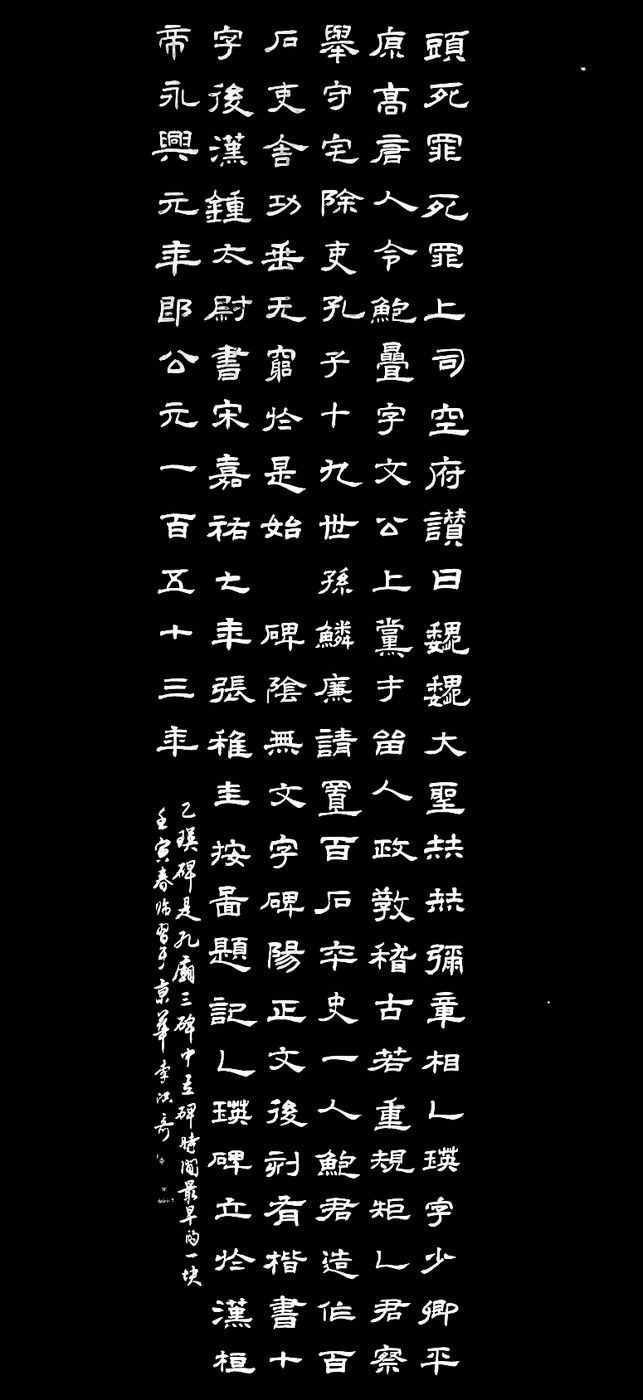 頭死罪死罪上司空府讃曰魏魏大聖赫赫彌章相乙瑛字少卿平
原高唐人令鮑疊字文公上黨屯留人政教稽古若重規矩乙君察
舉守宅除吏孔子十九世孫鱗廉請置百石卒史一人鮑君造作百
石吏舍功垂无窮於是始 碑陰無文字碑陽正文後刻有楷書十
字後漢鍾太尉書宋嘉祐七年張稚圭按圖題記乙瑛碑立於漢桓
帝永興元年即公元一百五十三年
乙瑛碑是孔廟三碑中立碑時間最早的一块
壬寅春临習于京華李洪奇